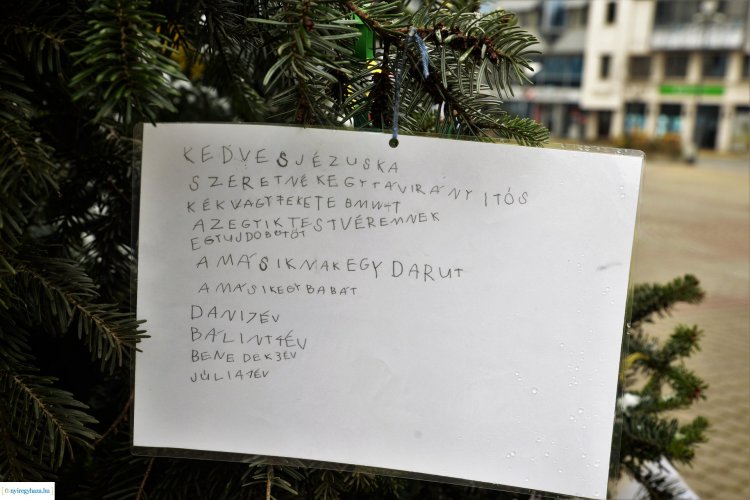 KEDVES JÉZUSKA
SZERETNÉK EGY TÁVIRÁNYITÓS
KÉK VAGY FEKETE BMW-T
AZ EGYIK TESTVÉREMNEK
EGY ÚJ DOBOTÖT
A MÁSIKNAK EGY DARUT
A MÁSIK EGY BABÁT
DANI 7 ÉV
BÁLINT 4 ÉV
BENEDEK 3 ÉV
JÚLIA 1 ÉV
nyiregyhaza.hu